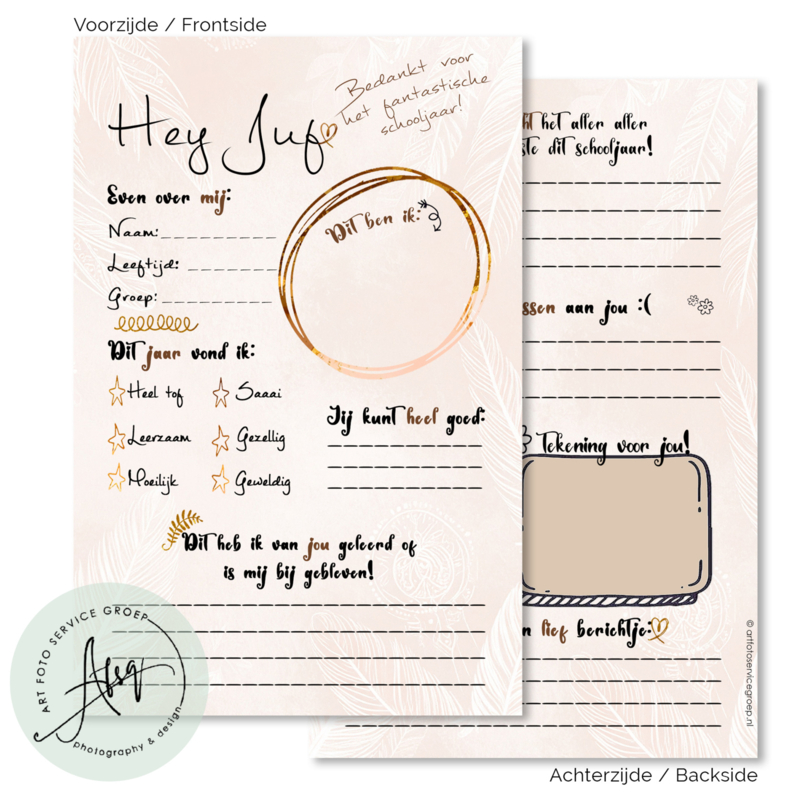 Voorzijde / Frontside
Hey Juf
Bedankt voor
het fantastische
schooljaar!
Even over mij:
Naam:
Leeftijd:
Groep:
Dit ben ik:
Dit jaar vond ik:
Heel tof
Saaai
Leerzaam
Gezellig
Moeilijk
Geweldig
Jij kunt heel goed:
Dit heb ik van jou geleerd of
is mij bij gebleven!
het aller aller
dit schooljaar!
aan jou :(
Tekening voor jou!
lief berichtje:
© artfotoservicegroep.nl
ART FOTO SERVICE GROEP
Afsg
photography & design
Achterzijde / Backside